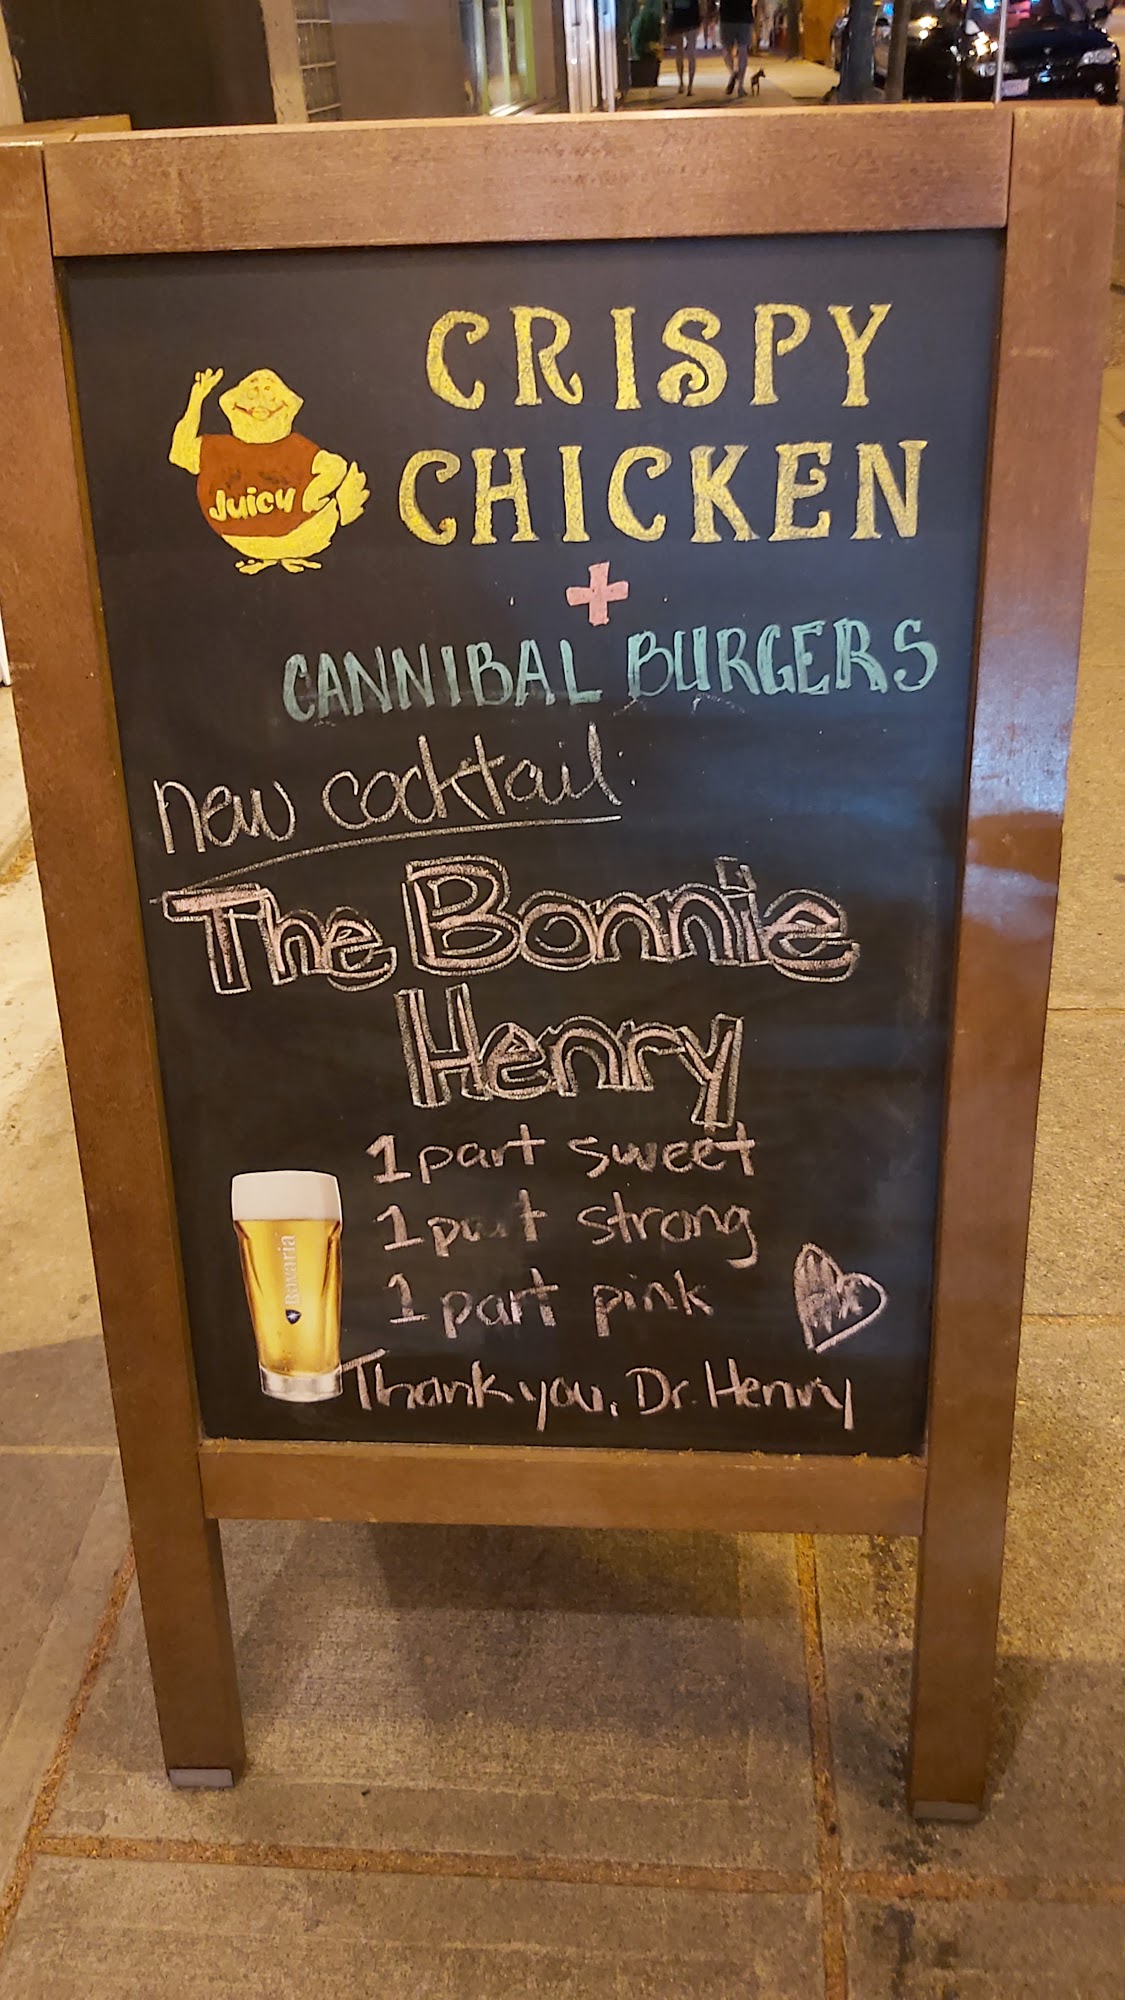 CRISPY
Juicy
CHICKEN
+
CANNIBAL BURGERS
new cocktail:
The Bonnie
Henry
1 part sweet
1 part strong
1 part pink
Bavaria
Thank you, Dr. Henry